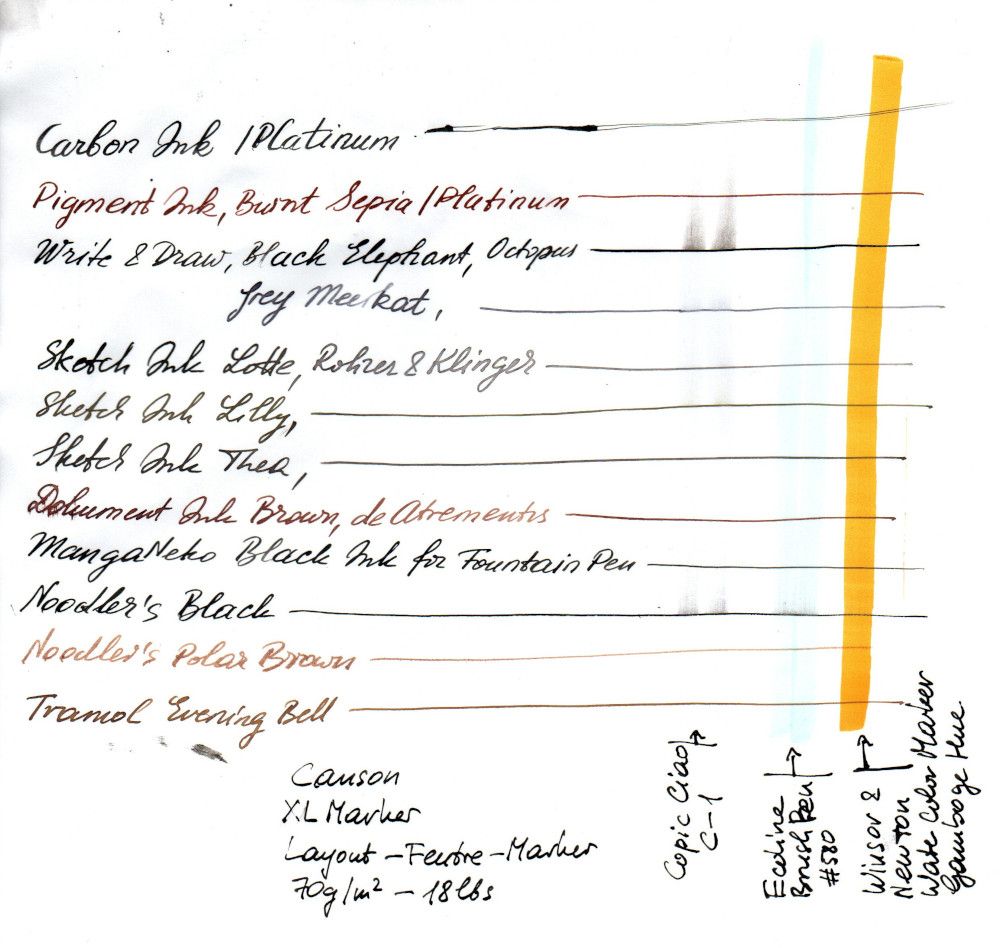 Carbon Ink /Platinum
Pigment Ink, Burnt Sepia /Platinum
Write & Draw, Black Elephant, Octopus
Grey Meerkat,
Sketch Ink Lotte, Rohrer & Klinger
Sketch Ink Lilly,
Sketch Ink Thea,
Dokument Ink Brown, de Atrementis
MangaNeko Black Ink for Fountain Pen
Noodler's Black
Noodler's Polar Brown
Tramol Evening Bell
Canson
XL Marker
Layout - Feutre - Marker
70g/m² - 18 lbs
Copic Ciao
C-1
Ecoline
Brush Pen
#580
Winsor &
Newton
Wate Color Marker
Gamboge Hue